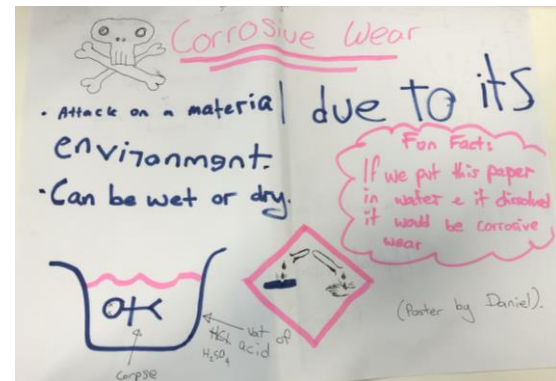 Corrosive Wear
• Attack on a material due to its
environment.
• Can be wet or dry.
Fun Fact:
If we put this paper
in water & it dissolved
it would be corrosive
wear
(Poster by Daniel).
vat of
acid
H₂SO₄
corpse